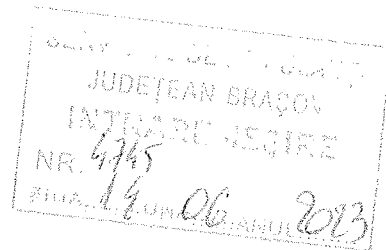 JUDEȚEAN BRAȘOV
INTRARE IEȘIRE
NR. 4745
ZIUA 14 LUNA 06 ANUL 2023